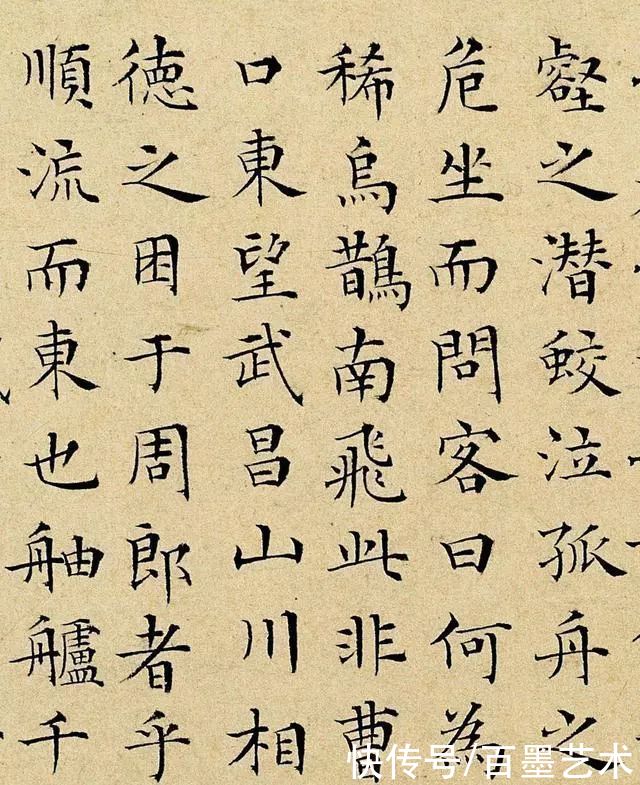 壑之潜蛟泣孤舟之
危坐而問客曰何為
稀烏鵲南飛此非曹
口東望武昌山川相
徳之困于周郎者乎
順流而東也舳艫千
快传号/百墨艺术